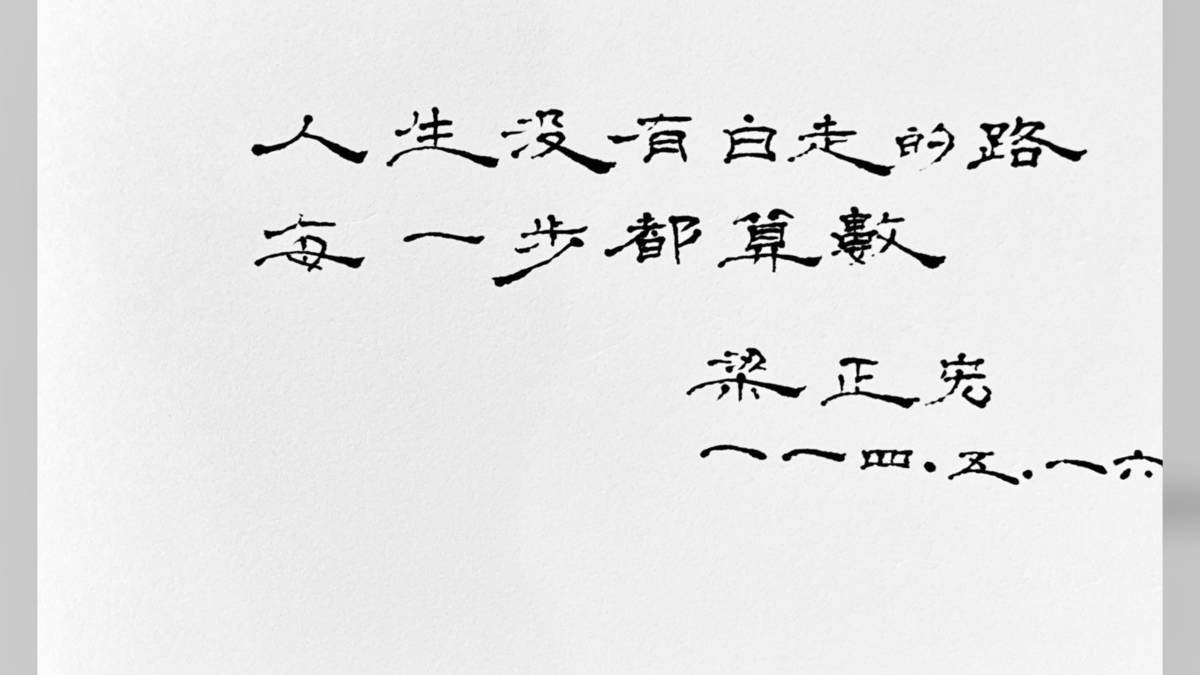 人生没有白走的路
每一步都算數
梁正宪
一一四.五.一六